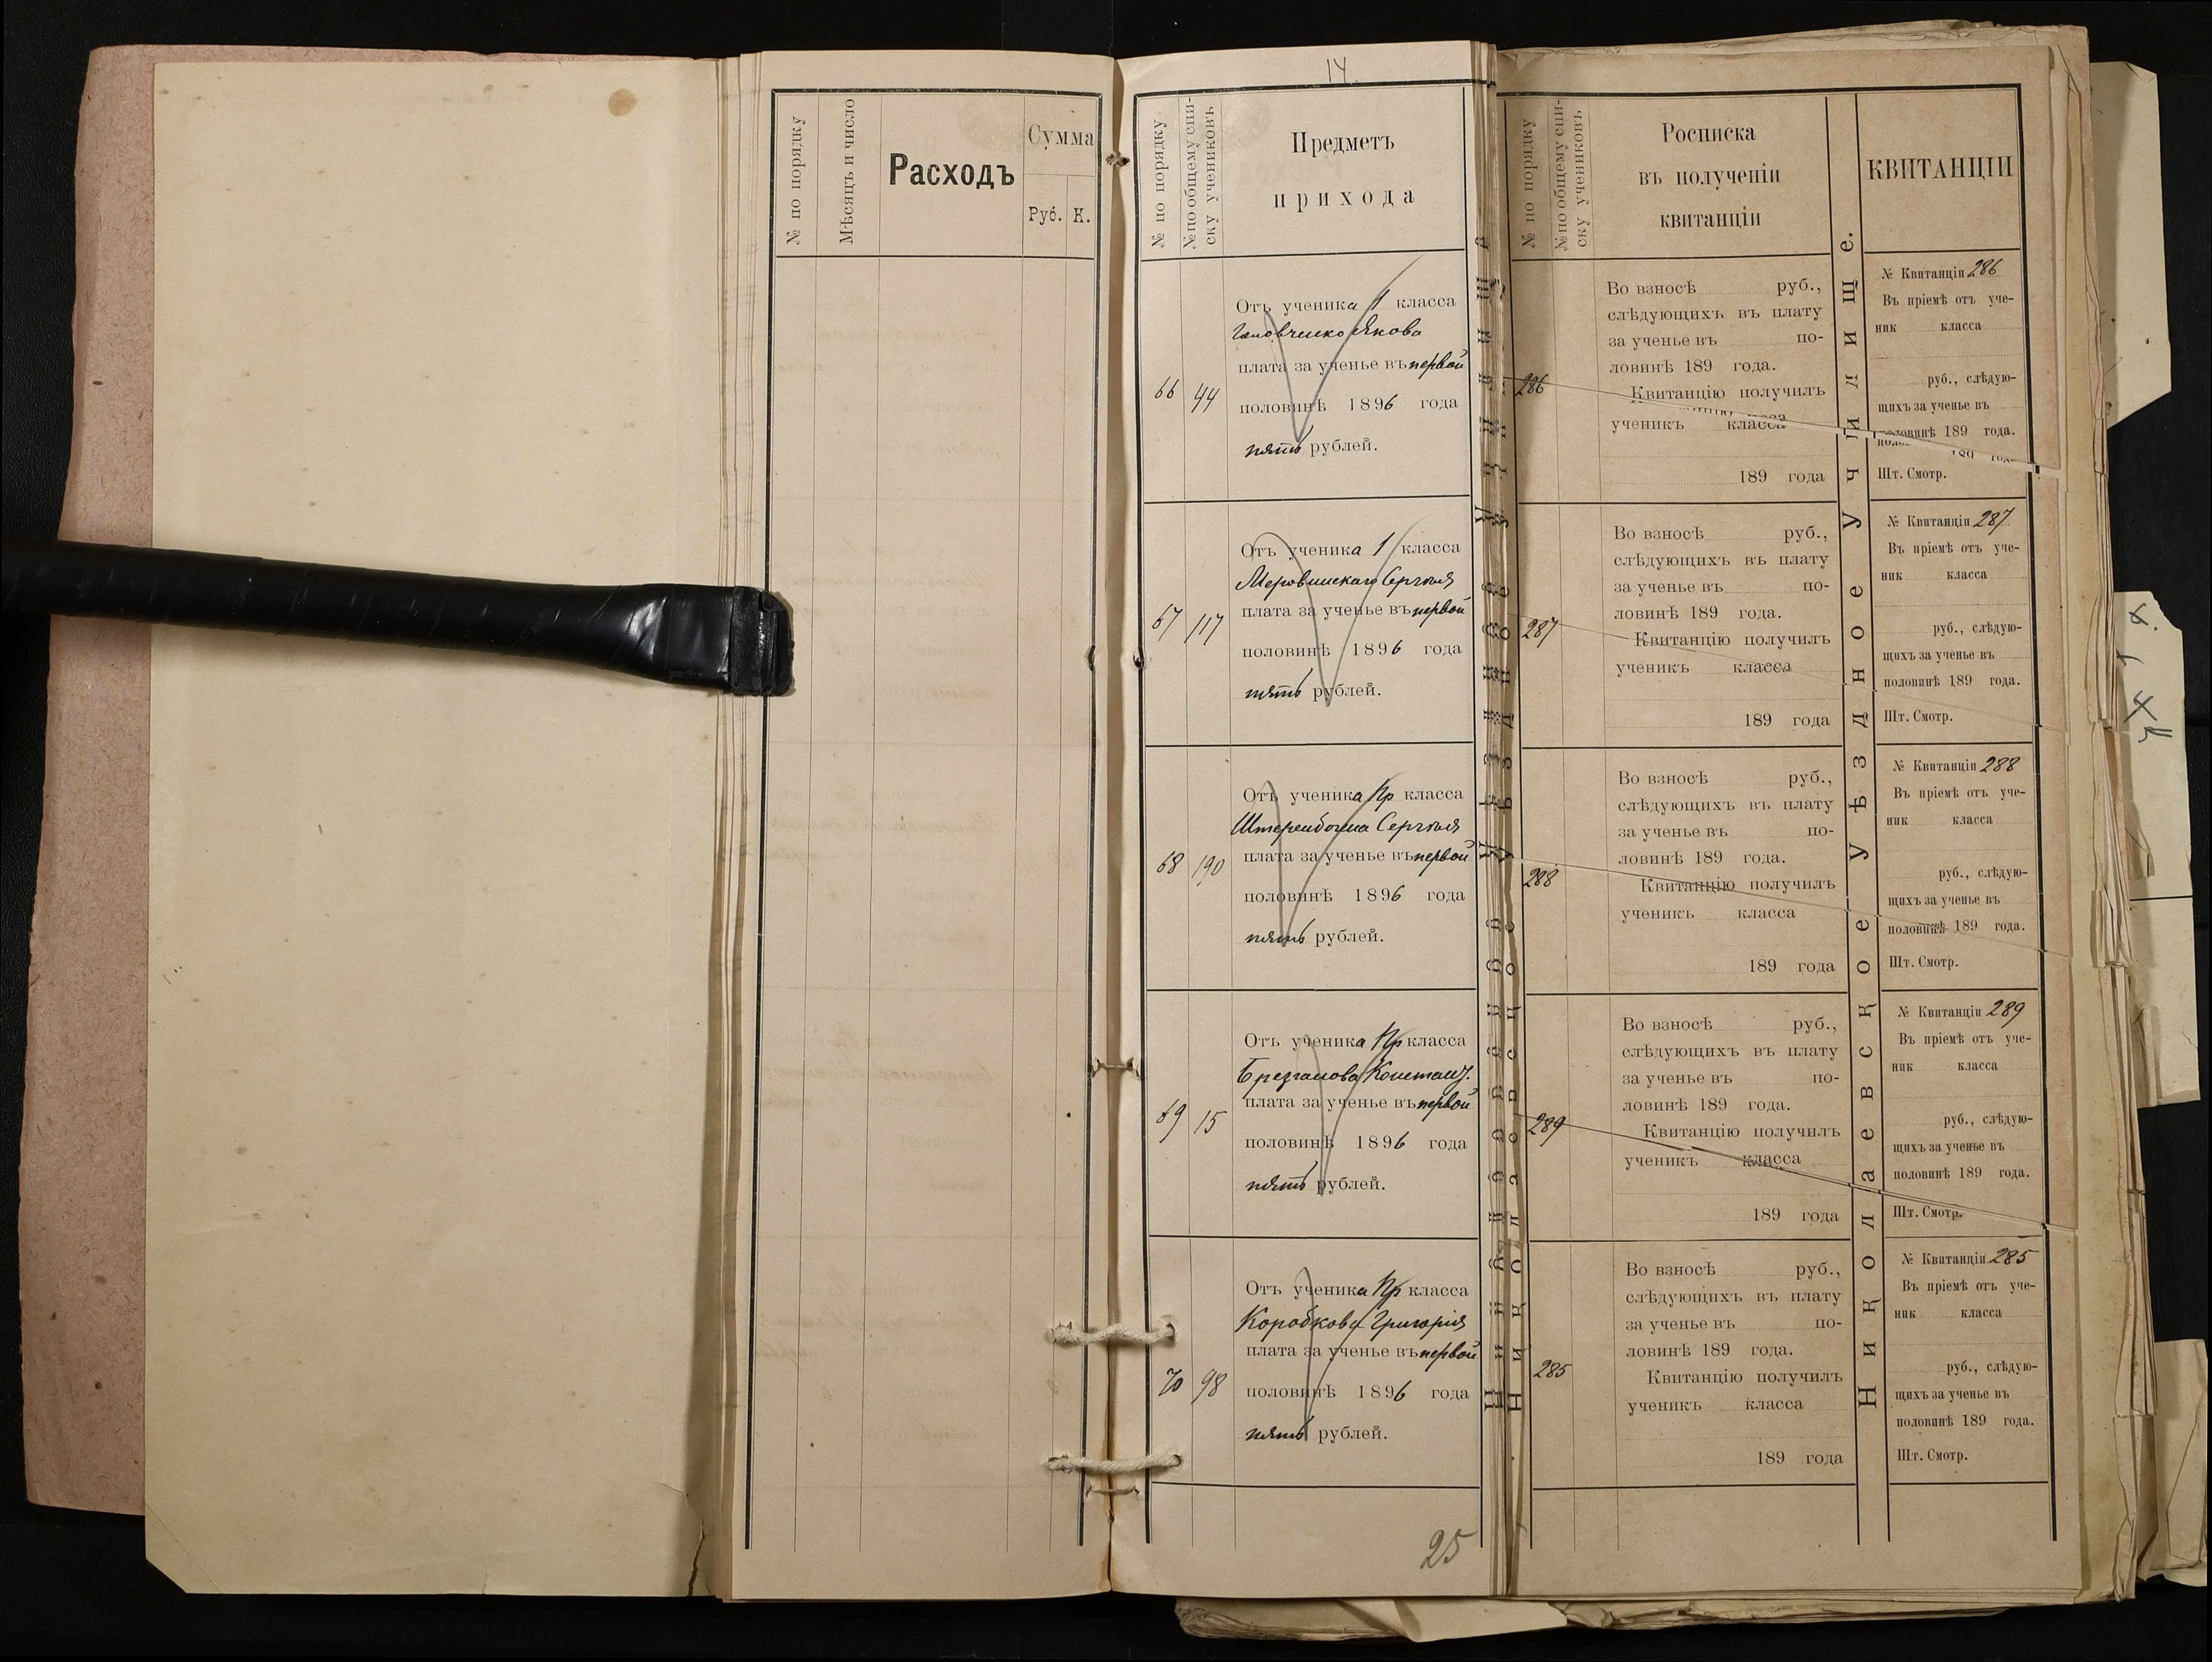 № по порядку
Мѣсяцъ и число
Расходъ
Сумма
Руб. К.
14
№ по порядку
№ по общему спи-
ску учениковъ
Предметъ
прихода
66 44
Отъ ученика 1 класса
Якова
плата за ученье въ первой
половинѣ 1896 года
пять рублей.
67 117
Отъ ученика 1 класса
Сергѣя
плата за ученье въ первой
половинѣ 1896 года
пять рублей.
68 190
Отъ ученика Пр класса
Штеренбогена Сергѣя
плата за ученье въ первой
половинѣ 1896 года
пять рублей.
69 15
Отъ ученика Пр класса
Констант.
плата за ученье въ первой
половинѣ 1896 года
пять рублей.
70 98
Отъ ученика Пр класса
Коробкова Григорія
плата за ученье въ первой
половинѣ 1896 года
пять рублей.
25
№ по порядку
№ по общему спи-
ску учениковъ
Росписка
въ полученіи
квитанціи
286
Во взносѣ руб.,
слѣдующихъ въ плату
за ученье въ по-
ловинѣ 189 года.
Квитанцію получилъ
ученикъ класса
189 года
287
Во взносѣ руб.,
слѣдующихъ въ плату
за ученье въ по-
ловинѣ 189 года.
Квитанцію получилъ
ученикъ класса
189 года
288
Во взносѣ руб.,
слѣдующихъ въ плату
за ученье въ по-
ловинѣ 189 года.
Квитанцію получилъ
ученикъ класса
189 года
289
Во взносѣ руб.,
слѣдующихъ въ плату
за ученье въ по-
ловинѣ 189 года.
Квитанцію получилъ
ученикъ класса
189 года
285
Во взносѣ руб.,
слѣдующихъ въ плату
за ученье въ по-
ловинѣ 189 года.
Квитанцію получилъ
ученикъ класса
189 года
Николаевское Уѣздное Училище.
КВИТАНЦІИ
№ Квитанціи 286
Въ пріемѣ отъ уче-
ник класса
руб., слѣдую-
щихъ за ученье въ
половинѣ 189 года.
Шт. Смотр.
№ Квитанціи 287
Въ пріемѣ отъ уче-
ник класса
руб., слѣдую-
щихъ за ученье въ
половинѣ 189 года.
Шт. Смотр.
№ Квитанціи 288
Въ пріемѣ отъ уче-
ник класса
руб., слѣдую-
щихъ за ученье въ
половинѣ 189 года.
Шт. Смотр.
№ Квитанціи 289
Въ пріемѣ отъ уче-
ник класса
руб., слѣдую-
щихъ за ученье въ
половинѣ 189 года.
Шт. Смотр.
№ Квитанціи 285
Въ пріемѣ отъ уче-
ник класса
руб., слѣдую-
щихъ за ученье въ
половинѣ 189 года.
Шт. Смотр.